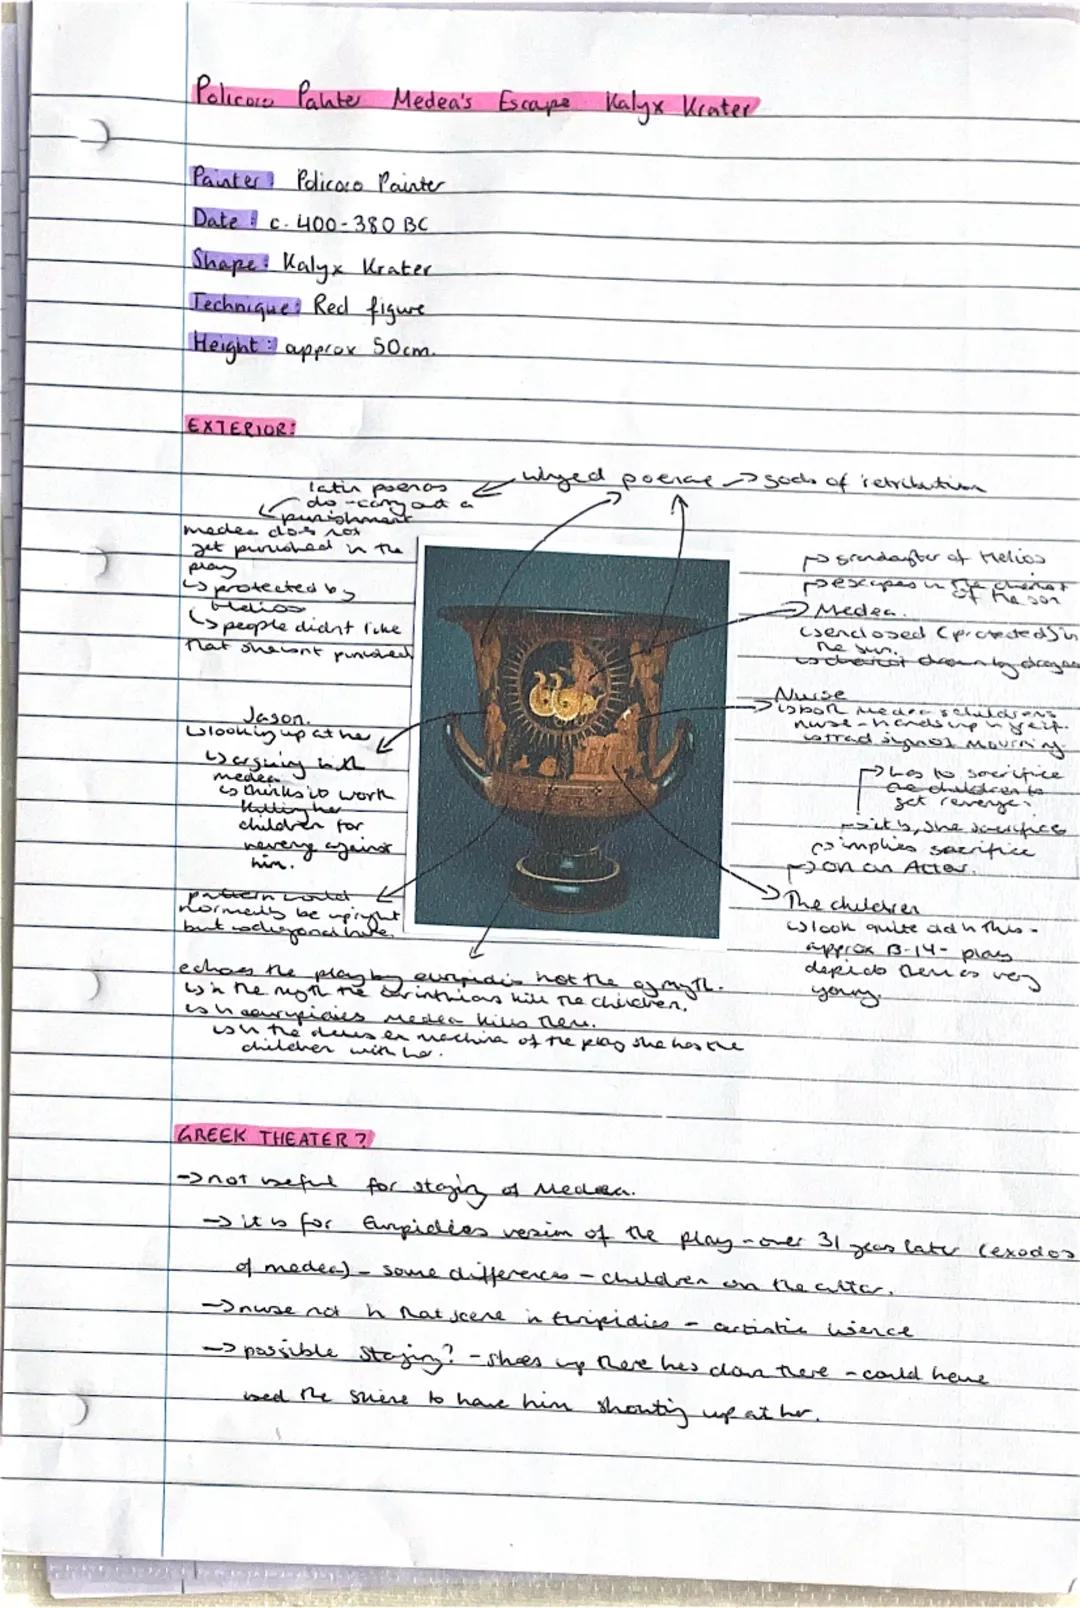 Policoro Painter Medea's Escape Kalyx Krater
Painter: Policoro Painter
Date: c. 400-380 BC
Shape: Kalyx Krater
Technique: Red figure
Height: approx 50cm.
EXTERIOR:
winged poenae → gods of retribution
latin poenas
do - carry out a
punishment
medea does not
get punished in the
play
↳ protected by
Helios
↳ people didnt like
that she isnt punished
Jason.
↳ looking up at her
↳ arguing with
medea
↳ thinks it worth
killing her
children for
revenge against
him.
pattern would
normally be upright
but is diagonal here.
→ grandaughter of Helios
→ escapes in the chariot
of the sun
Medea.
↳ enclosed (protected) in
the sun.
↳ chariot drawn by dragons
Nurse
↳ both medea & childrens
nurse - hands up in grief.
↳ trad sign of mourning.
→ has to sacrifice
the children to
get revenge.
→ implies sacrifice
→ on an Alter.
The children
↳ look quite old in this -
approx 13-14 - plays
depicts them as very
young.
echoes the play by euripidies not the og myth.
↳ in the myth the corinthians kill the children.
↳ in euripidies medea kills them.
↳ in the deus ex machina of the play she has the
children with her.
GREEK THEATER?
→ not useful for staging of Medea.
→ it is for Euripidies version of the play - over 31 years later (exodos
of medea) - some differences - children on the altar.
→ nurse not in that scene in Euripidies - artistic lisence
→ possible staging? - shes up there hes down there - could have
used the skene to have him shouting up at her.